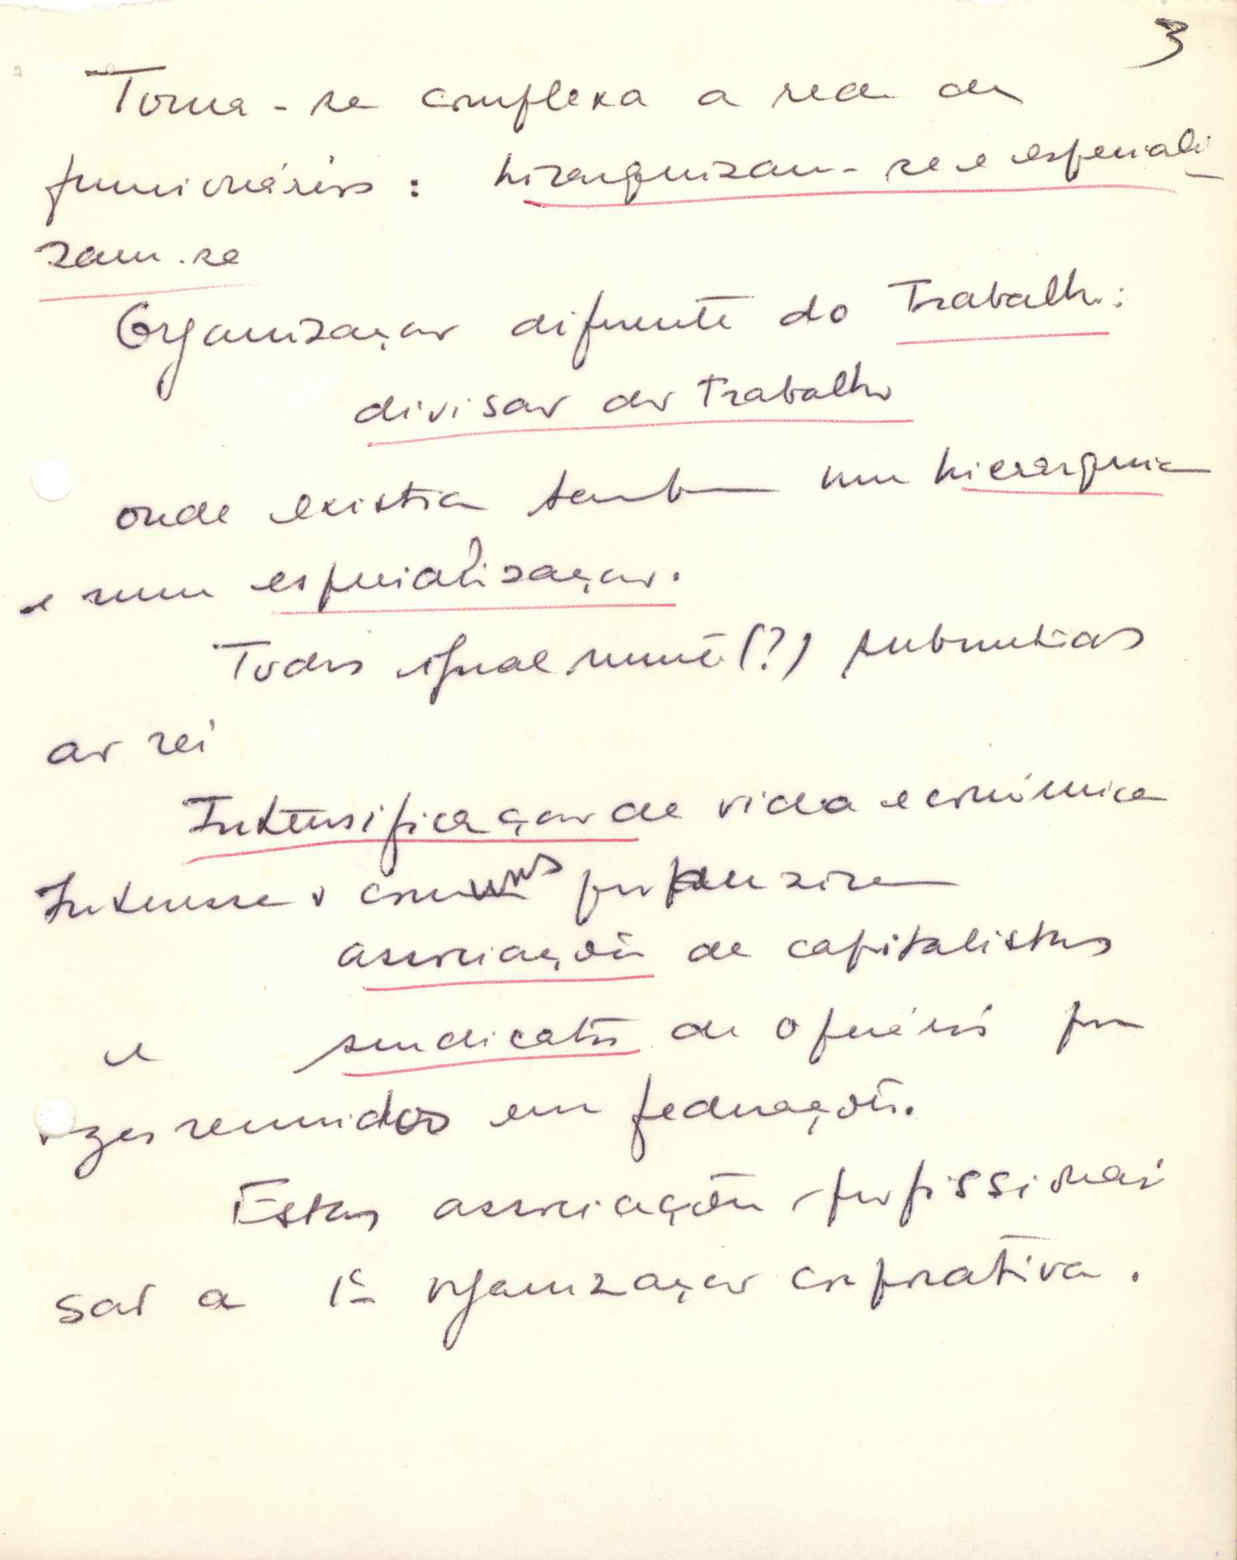 3
Torna-se complexa a rede de
funcionários: hierarquizam-se e especiali
zam-se
Organização diferente do Trabalho:
divisão do Trabalho
onde existia tambem uma hierarquia
e uma especialização.
Todos igualmente (?) submetidos
ao rei
Intensificação de vida económica
Interesses comuns produzirem
associações de capitalistas
e sindicatos de operários por
vezes reunidos em federações.
Estas associações profissionais
são a 1ª organização corporativa.